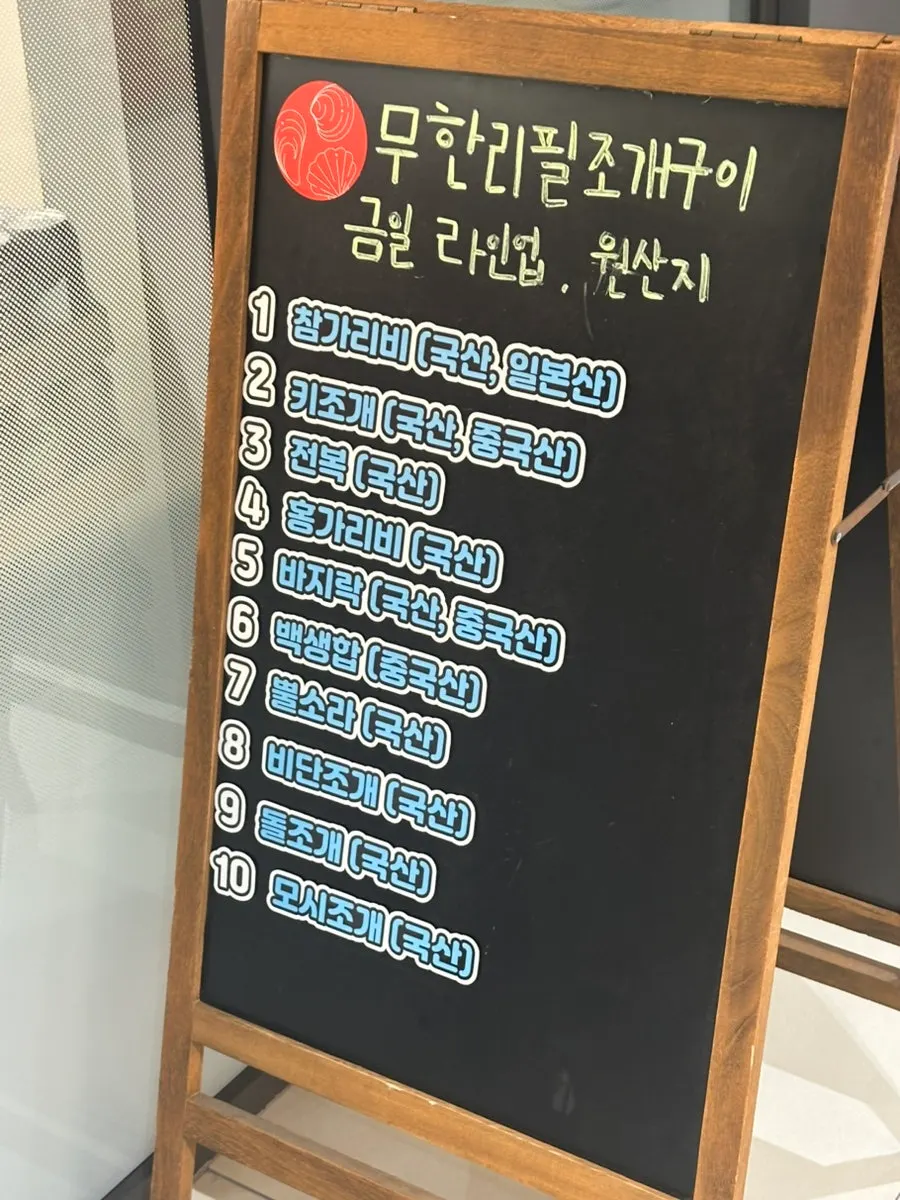 무한리필조개구이
금일 라인업 . 원산지
1 참가리비 (국산, 일본산)
2 키조개 (국산, 중국산)
3 전복 (국산)
4 홍가리비 (국산)
5 바지락 (국산, 중국산)
6 백생합 (중국산)
7 뿔소라 (국산)
8 비단조개 (국산)
9 돌조개 (국산)
10 모시조개 (국산)